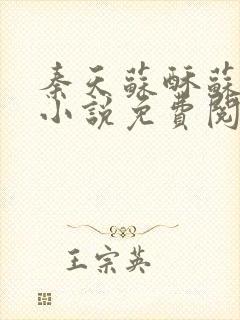 秦天蘇酥蘇
小說免費閱
王宗英